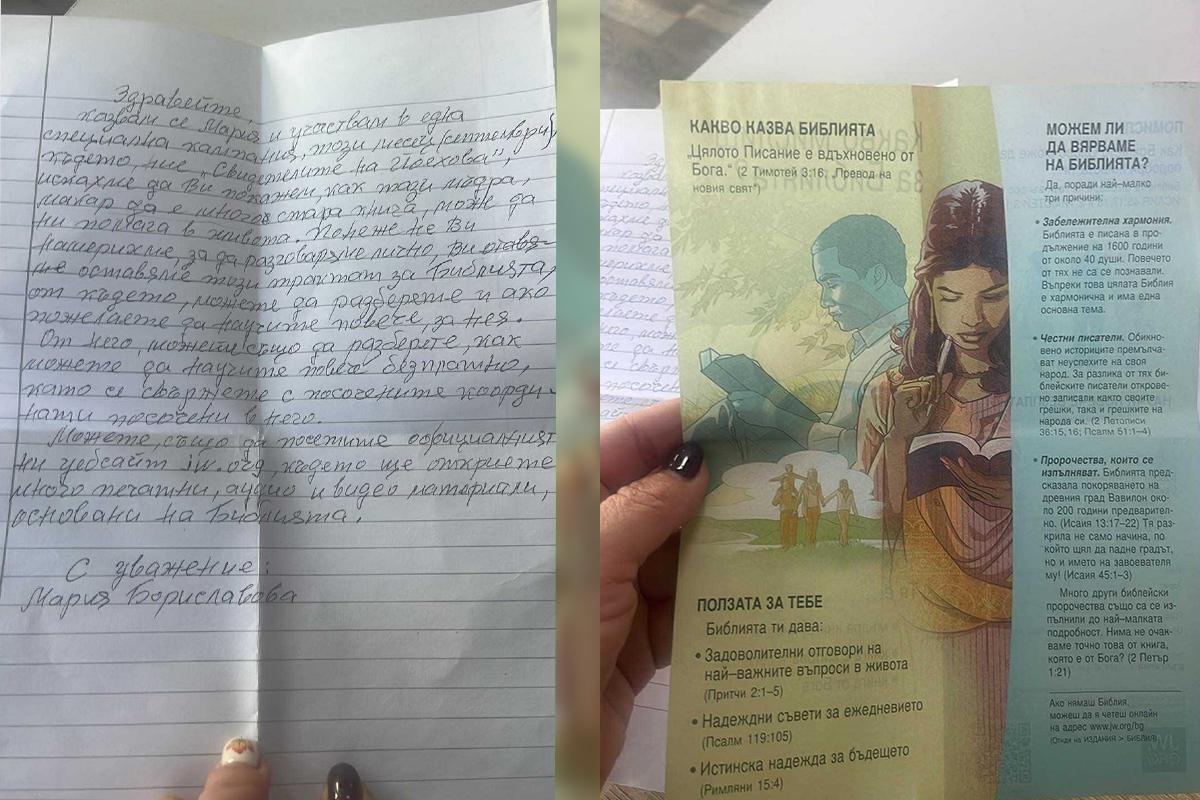 Здравейте,
казвам се Мария и участвам в една
специална кампания, този месец (септември),
където ние „Свидетелите на Йехова",
искахме да Ви покажем, как тази мъдра,
макар да е много стара книга, може да
ни помага в живота. Понеже не Ви
намерихме, за да разговаряме лично, Ви оставя-
ме оставяме този трактат за Библията,
от където, можете да разберете и ако
пожелаете да научите повече, за нея.
От него, можете също да разберете, как
можете да научите повече безплатно,
като се свържете с посочените коорди-
нати посочени в него.
Можете, също да посетите официалният
ни уебсайт jw.org, където ще откриете
много печатни, аудио и видео материали,
основани на Библията.
С уважение:
Мария Бориславова
КАКВО КАЗВА БИБЛИЯТА
„Цялото Писание е вдъхновено от
Бога." (2 Тимотей 3:16, „Превод на
новия свят")
ПОЛЗАТА ЗА ТЕБЕ
Библията ти дава:
• Задоволителни отговори на
най–важните въпроси в живота
(Притчи 2:1–5)
• Надеждни съвети за ежедневието
(Псалм 119:105)
• Истинска надежда за бъдещето
(Римляни 15:4)
МОЖЕМ ЛИ
ДА ВЯРВАМЕ
НА БИБЛИЯТА?
Да, поради най–малко
три причини:
• Забележителна хармония.
Библията е писана в про-
дължение на 1600 години
от около 40 души. Повечето
от тях не са се познавали.
Въпреки това цялата Библия
е хармонична и има една
основна тема.
• Честни писатели. Обикно-
вено историците премълча-
ват неуспехите на своя
народ. За разлика от тях би-
блейските писатели открове-
но записали както своите
грешки, така и грешките на
народа си. (2 Летописи
36:15, 16; Псалм 51:1–4)
• Пророчества, които се
изпълняват. Библията пред-
сказала покоряването на
древния град Вавилон око-
ло 200 години предварител-
но. (Исаия 13:17–22) Тя раз-
крила не само начина, по
който щял да падне градът,
но и името на завоевателя
му! (Исаия 45:1–3)
Много други библейски
пророчества също са се из-
пълнили до най–малката
подробност. Нима не очак-
ваме точно това от книга,
която е от Бога? (2 Петър
1:21)
Ако нямаш Библия,
можеш да я четеш онлайн
на адрес www.jw.org/bg
(Отиди на ИЗДАНИЯ > БИБЛИЯ)
JW
.ORG